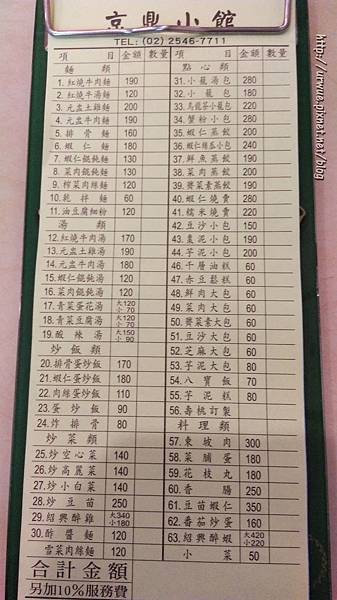 京鼎小館
TEL: (02) 2546-7711
項 目 金額 數量
麵 類
1.紅燒牛肉麵 190
2.紅燒牛湯麵 120
3.元盅土雞麵 200
4.元盅牛肉麵 190
5.排骨麵 160
6.蝦仁麵 180
7.蝦仁餛飩麵 130
8.菜肉餛飩麵 130
9.榨菜肉絲麵 120
10.乾拌麵 60
11.油豆腐細粉 120
湯 類
12.紅燒牛肉湯 170
13.元盅土雞湯 190
14.元盅牛肉湯 180
15.蝦仁餛飩湯 120
16.菜肉餛飩湯 120
17.青菜蛋花湯 大120 小 70
18.青菜豆腐湯 大120 小 70
19.酸辣湯 大150 小 90
炒飯類
20.排骨蛋炒飯 170
21.蝦仁蛋炒飯 180
22.肉絲蛋炒飯 110
23.蛋炒飯 90
24.炸排骨 80
炒菜類
25.炒空心菜 140
26.炒高麗菜 140
27.炒小白菜 140
28.炒豆苗 250
29.紹興醉雞 大340 小180
30.酢醬麵 120
雪菜肉絲麵 120
合計金額
另加10%服務費
項 目 金額 數量
點心類
31.小籠湯包 280
32.小籠包 180
33.烏龍茶小籠包 220
34.蟹粉小包 280
35.蝦仁蒸餃 200
36.蝦仁絲瓜小包 240
37.鮮魚蒸餃 190
38.菜肉蒸餃 200
39.薺菜素蒸餃 190
40.蝦仁燒賣 280
41.糯米燒賣 220
42.豆沙小包 150
43.棗泥小包 190
44.芋泥小包 200
46.千層油糕 60
47.赤豆鬆糕 60
48.鮮肉大包 60
49.菜肉大包 60
50.薺菜素大包 60
51.豆沙大包 60
52.芝麻大包 60
53.芋泥大包 80
54.八寶飯 70
55.芋泥糕 80
56.壽桃訂製
料理類
57.東坡肉 300
58.菜脯蛋 180
59.花枝丸 180
60.香腸 250
61.豆苗蝦仁 350
62.番茄炒蛋 160
63.紹興醉蝦 大420 小220
小菜 50